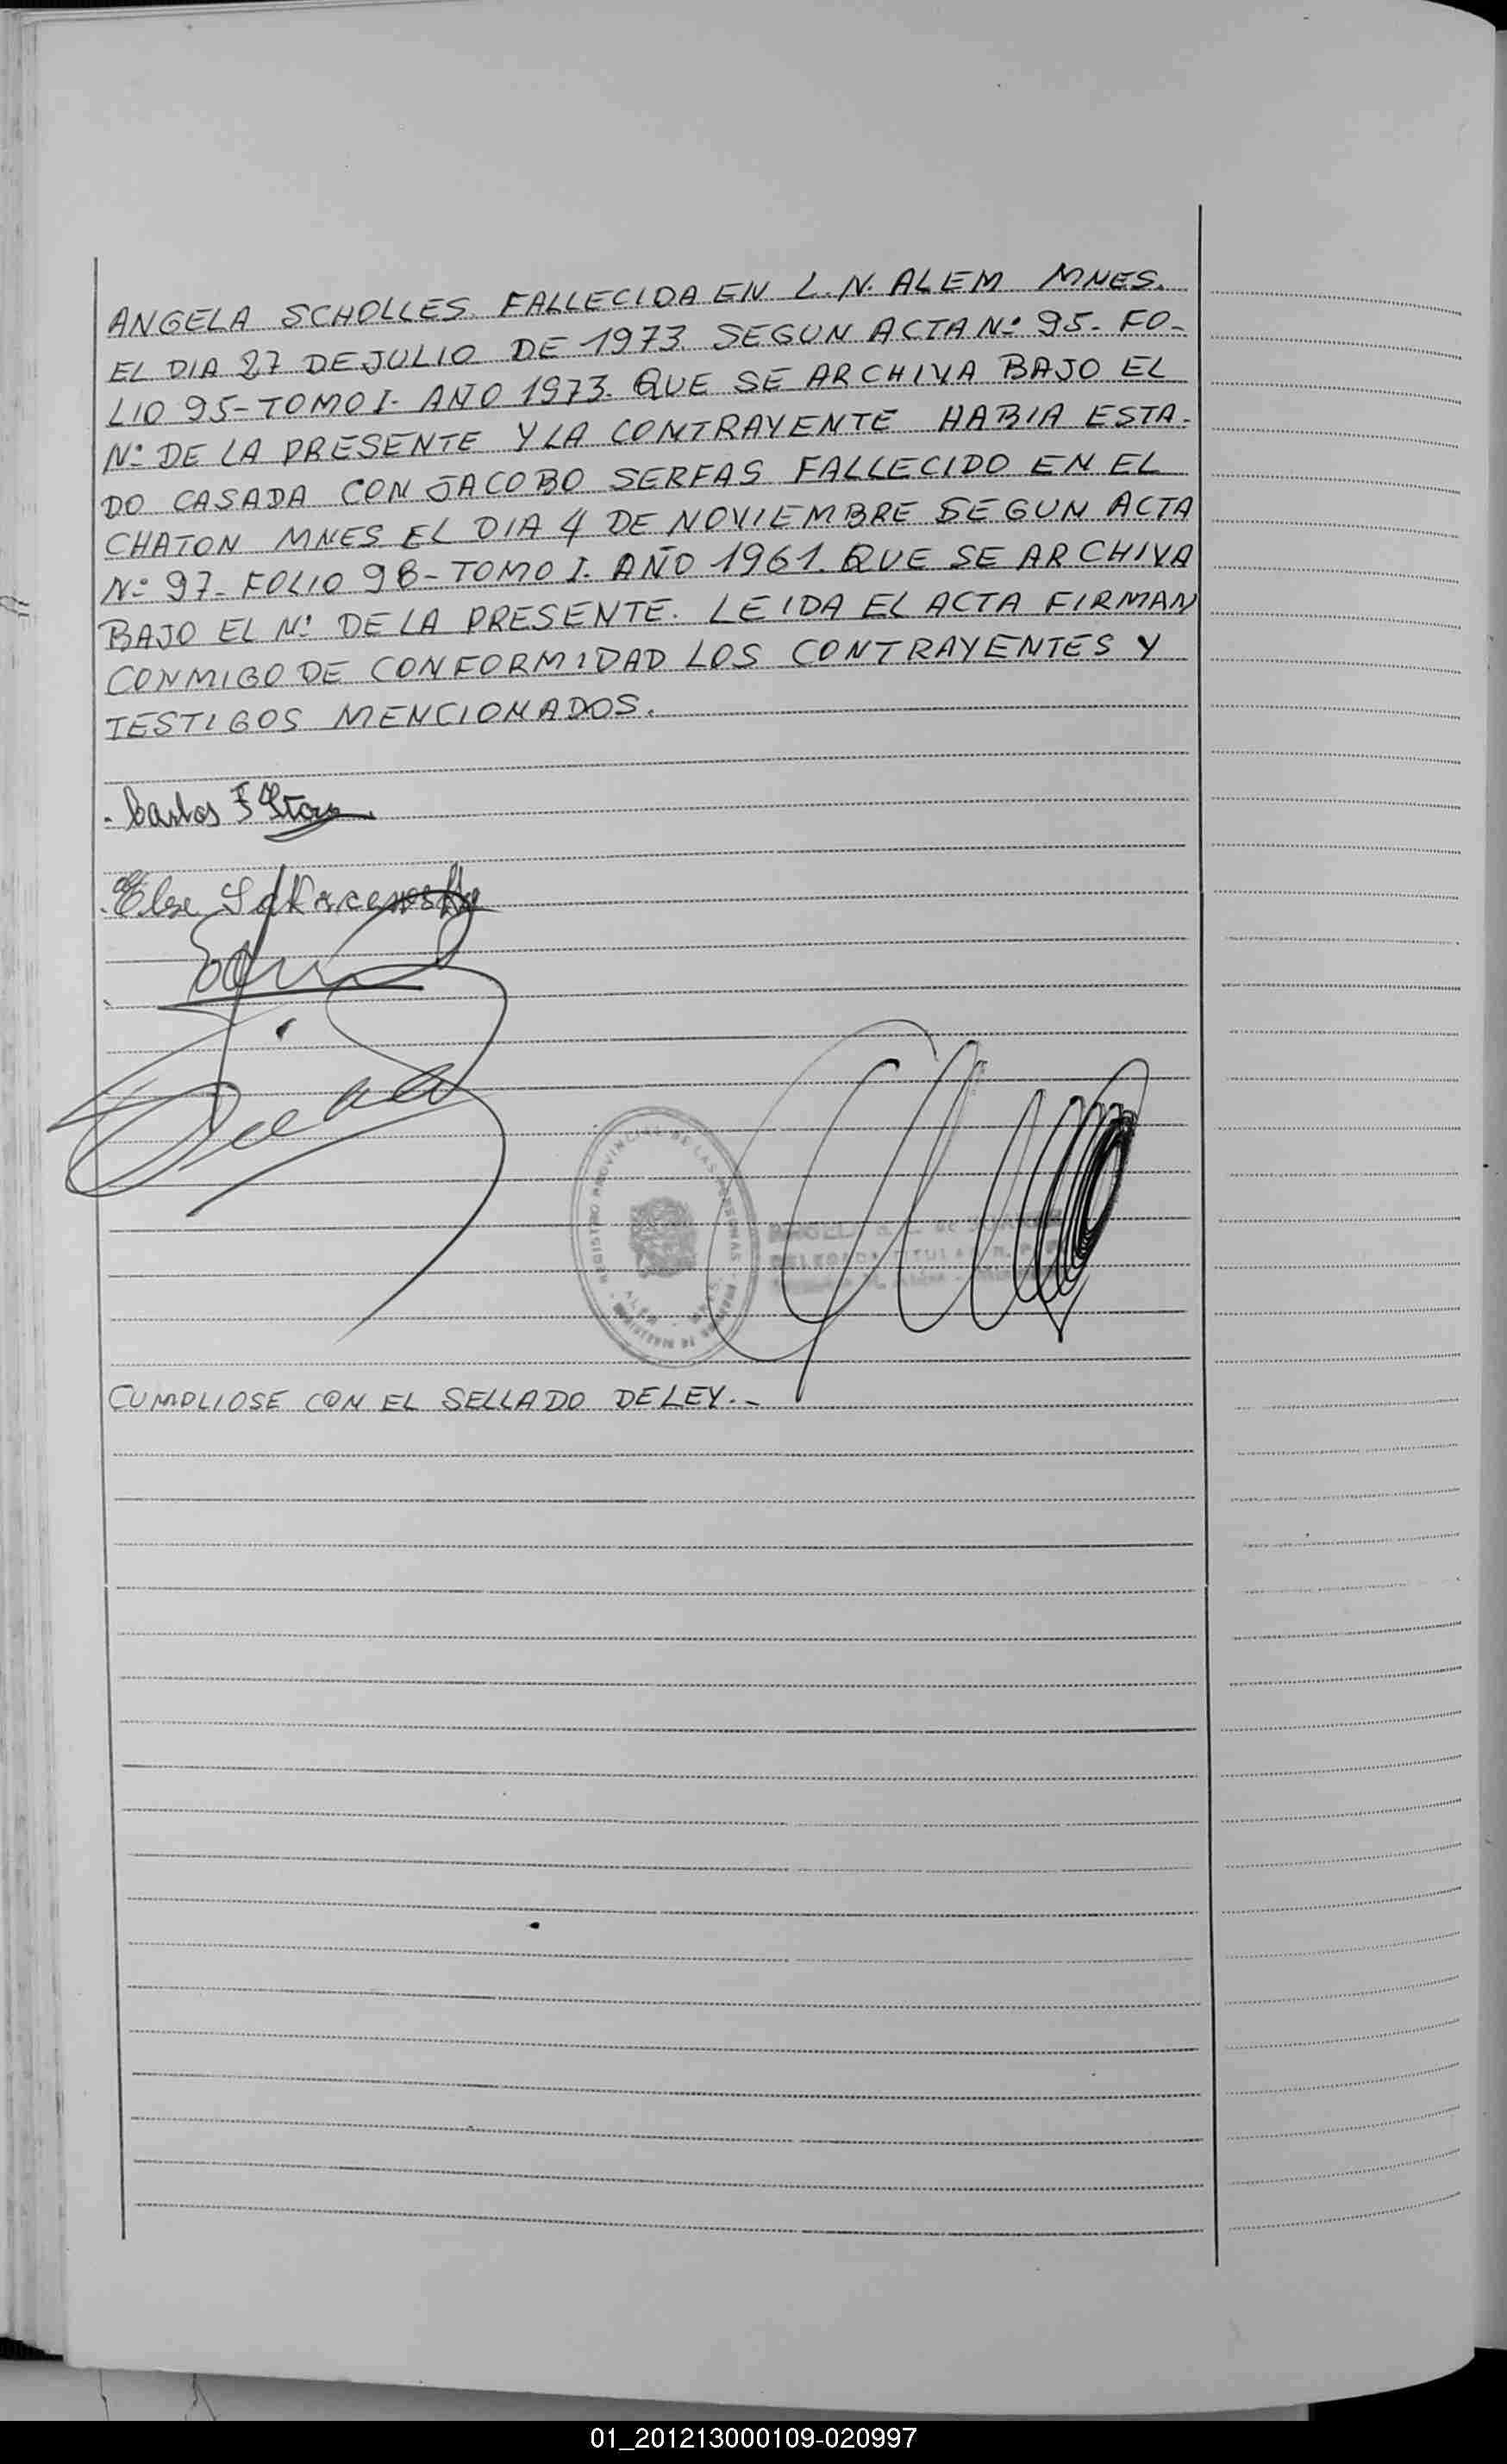 ANGELA SCHOLLES. FALLECIDA EN L.N. ALEM MNES.
EL DIA 27 DE JULIO DE 1973. SEGUN ACTA Nº 95- FO-
LIO 95- TOMO I- AÑO 1973. QUE SE ARCHIVA BAJO EL
Nº DE LA PRESENTE Y LA CONTRAYENTE HABIA ESTA-
DO CASADA CON JACOBO SERFAS FALLECIDO EN EL
CHATON MNES EL DIA 4 DE NOVIEMBRE SEGUN ACTA
Nº 97- FOLIO 98- TOMO I. AÑO 1961. QUE SE ARCHIVA
BAJO EL Nº DE LA PRESENTE. LEIDA EL ACTA FIRMAN
CONMIGO DE CONFORMIDAD LOS CONTRAYENTES Y
TESTIGOS MENCIONADOS.
Carlos
REGISTRO PROVINCIAL DE LAS PERSONAS
ALEM
DELEGADA TITULAR R. P. P.
CUMPLIOSE CON EL SELLADO DE LEY.-
01_201213000109-020997